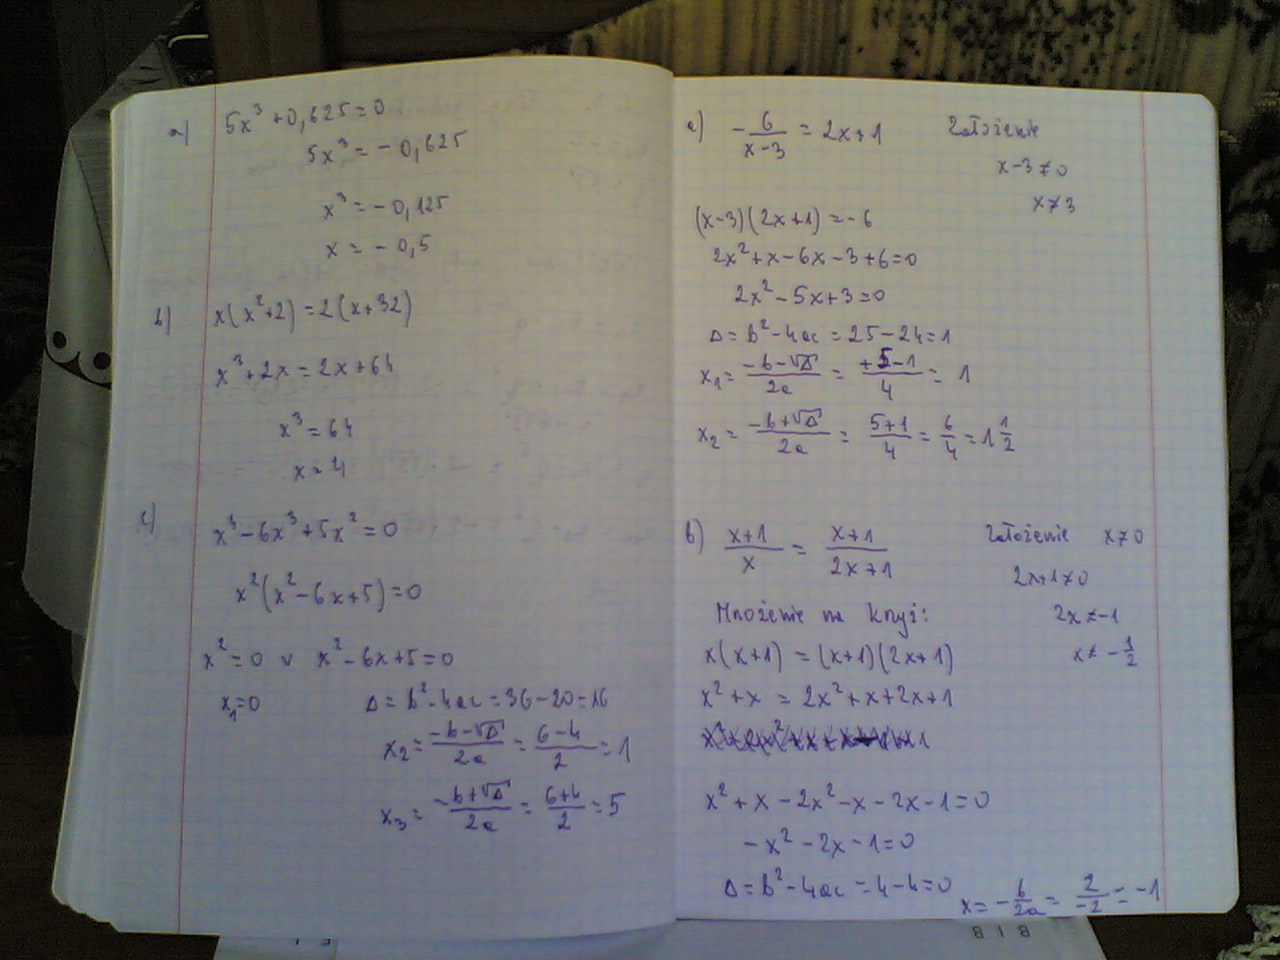 a) 5x³ + 0,625 = 0
5x³ = - 0,625
x³ = - 0,125
x = - 0,5
b) x(x²+2) = 2(x+32)
x³ + 2x = 2x + 64
x³ = 64
x = 4
c) x⁴ - 6x³ + 5x² = 0
x²(x² - 6x + 5) = 0
x² = 0 v x² - 6x + 5 = 0
x₁ = 0 Δ = b² - 4ac = 36 - 20 = 16
x₂ = (-b-√Δ)/2a = (6-4)/2 = 1
x₃ = (-b+√Δ)/2a = (6+4)/2 = 5
a) - 6/(x-3) = 2x+1 Założenie
x-3 ≠ 0
x ≠ 3
(x-3)(2x+1) = -6
2x² + x - 6x - 3 + 6 = 0
2x² - 5x + 3 = 0
Δ = b² - 4ac = 25 - 24 = 1
x₁ = (-b-√Δ)/2a = (+5-1)/4 = 1
x₂ = (-b+√Δ)/2a = (5+1)/4 = 6/4 = 1 1/2
b) (x+1)/x = (x+1)/(2x+1) Założenie x ≠ 0
2x+1 ≠ 0
Mnożenie na krzyż: 2x ≠ -1
x(x+1) = (x+1)(2x+1) x ≠ - 1/2
x² + x = 2x² + x + 2x + 1
x² + x - 2x² - x - 2x - 1 = 0
- x² - 2x - 1 = 0
Δ = b² - 4ac = 4 - 4 = 0 x = - b/2a = 2/-2 = -1